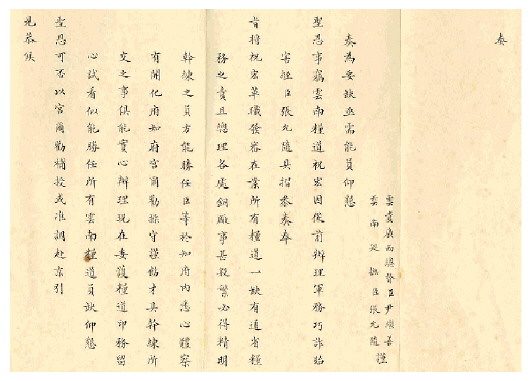 奏
雲貴廣西總督臣尹繼善
雲南巡撫臣張允隨謹
奏為要缺亟需能員仰懇
聖恩事竊雲南糧道祝宏因從前辦理軍務巧詐
害經臣張允隨具摺參奏奉
旨將祝宏革職發審在案所有糧道一缺有通省糧
務之責且總理各處銅廠事甚殷繁必得精明
幹練之員方能勝任臣等於知府內悉心體察
有開化府知府宮爾勸操守謹勤才具幹練所
交之事俱能實心辦理現在委護糧道印務留
心試看似能勝任所有雲南糧道員缺仰懇
聖恩可否以宮爾勸補授或准調赴京引
見恭候